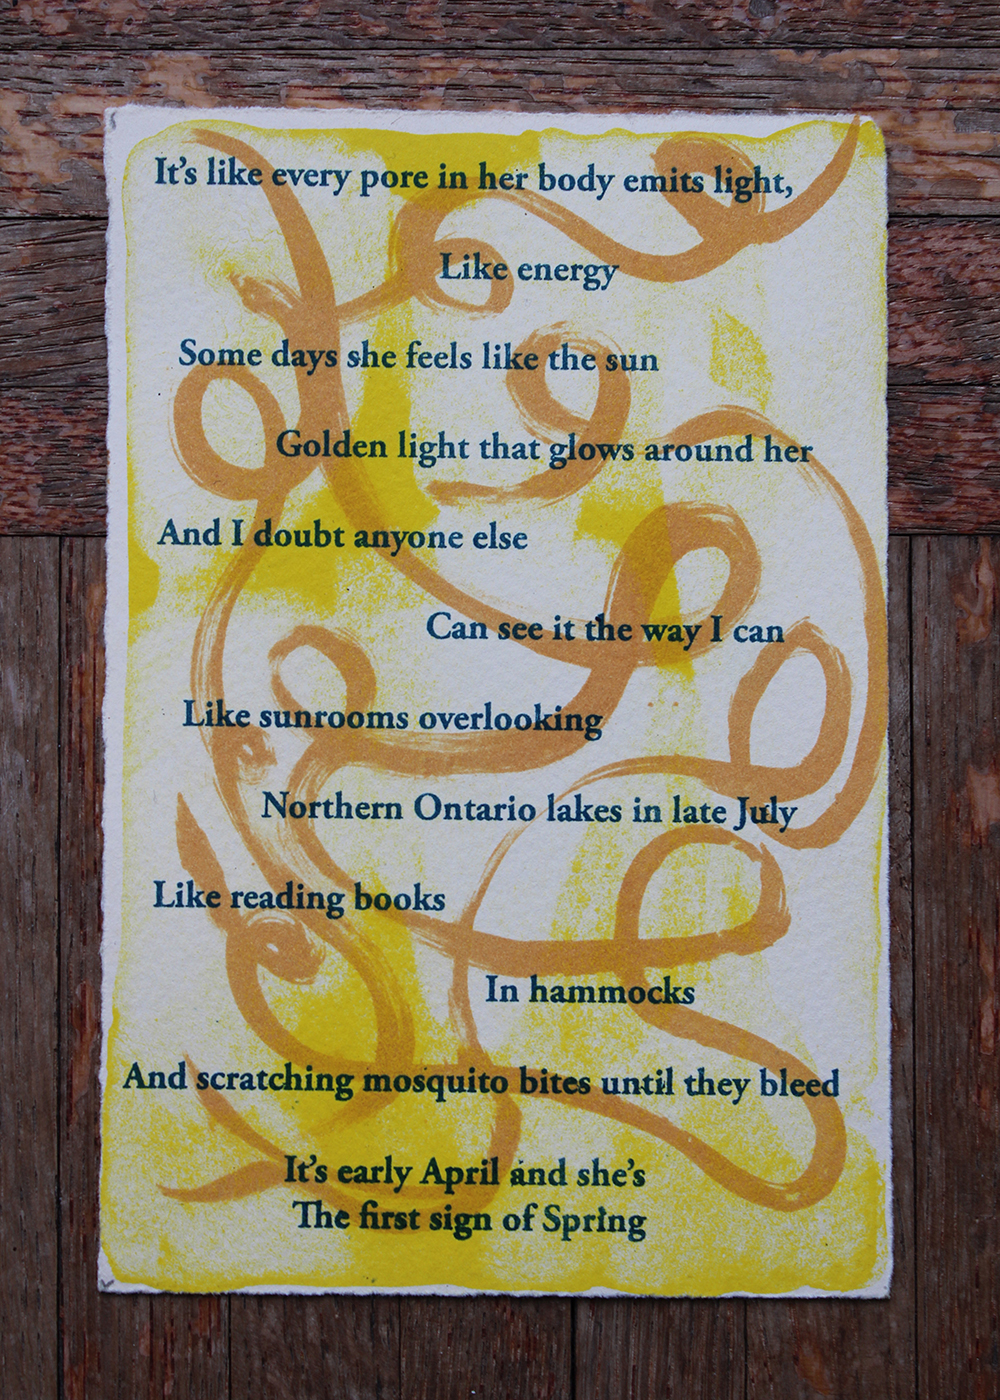 It's like every pore in her body emits light,
Like energy
Some days she feels like the sun
Golden light that glows around her
And I doubt anyone else
Can see it the way I can
Like sunrooms overlooking
Northern Ontario lakes in late July
Like reading books
In hammocks
And scratching mosquito bites until they bleed
It's early April and she's
The first sign of Spring